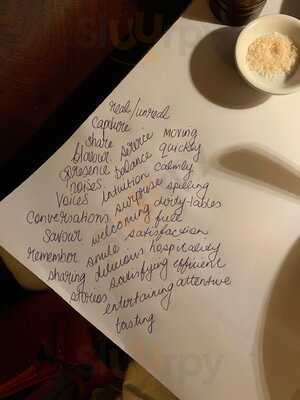 real/unreal
capture
share
flavour service moving
presence balance quickly
noises intuition calmly
voices surprise spilling
conversations welcoming dirty-tables
savour smile full
remember delicious satisfaction
sharing satisfying hospitality
stories entertaining efficient
tasting attentive